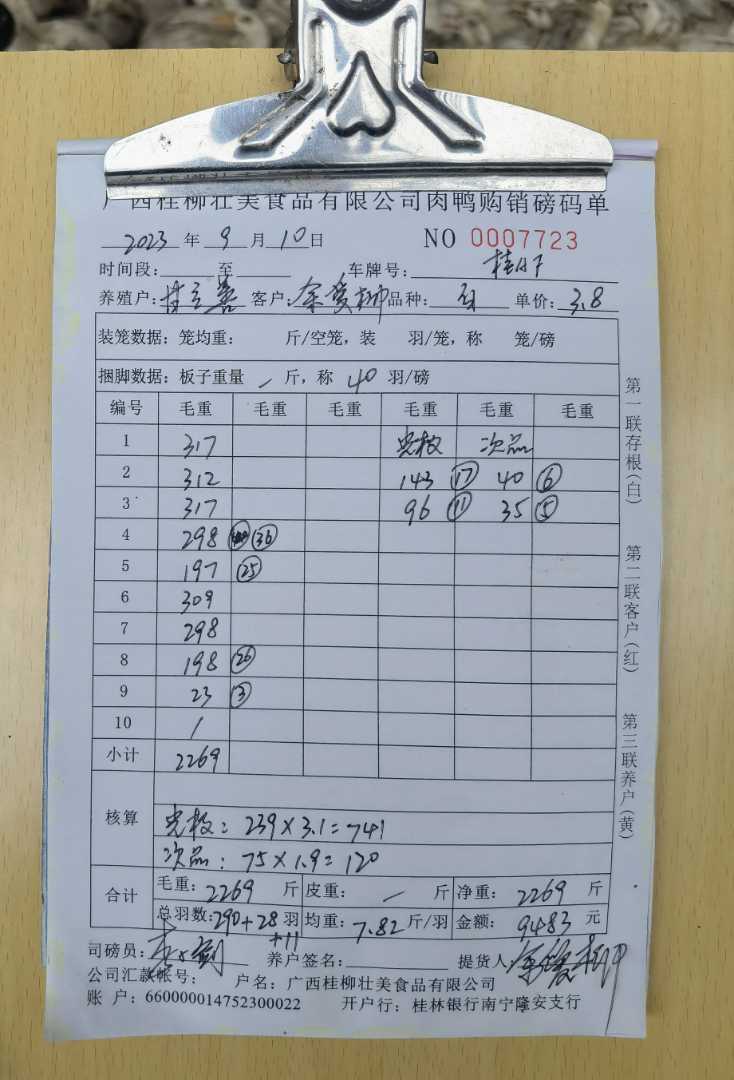 广西桂柳壮美食品有限公司肉鸭购销磅码单
2023 年 9 月 10 日 NO 0007723
时间段: 至 车牌号: 桂
养殖户: 客户: 余爱柳 品种: 单价: 3.8
装笼数据: 笼均重: 斤/空笼, 装 羽/笼, 称 笼/磅
捆脚数据: 板子重量 / 斤, 称 40 羽/磅
编号 毛重 毛重 毛重 毛重 毛重 毛重
1 317 光板 次品
2 312 143 ⑰ 40 ⑥
3 317 96 ⑪ 35 ⑤
4 298 ㊱
5 197 ㉕
6 309
7 298
8 198 ㉖
9 23 ③
10 /
小计 2269
核算
光板: 239×3.1=741
次品: 75×1.9=120
合计 毛重: 2269 斤 皮重: / 斤 净重: 2269 斤
总羽数: 290+28 羽 均重: 7.82 斤/羽 金额: 9483 元
+11
司磅员: 养户签名: 提货人 余爱柳
公司汇款帐号: 户名: 广西桂柳壮美食品有限公司
账 户: 660000014752300022 开户行: 桂林银行南宁隆安支行
第一联存根(白)
第二联客户(红)
第三联养户(黄)